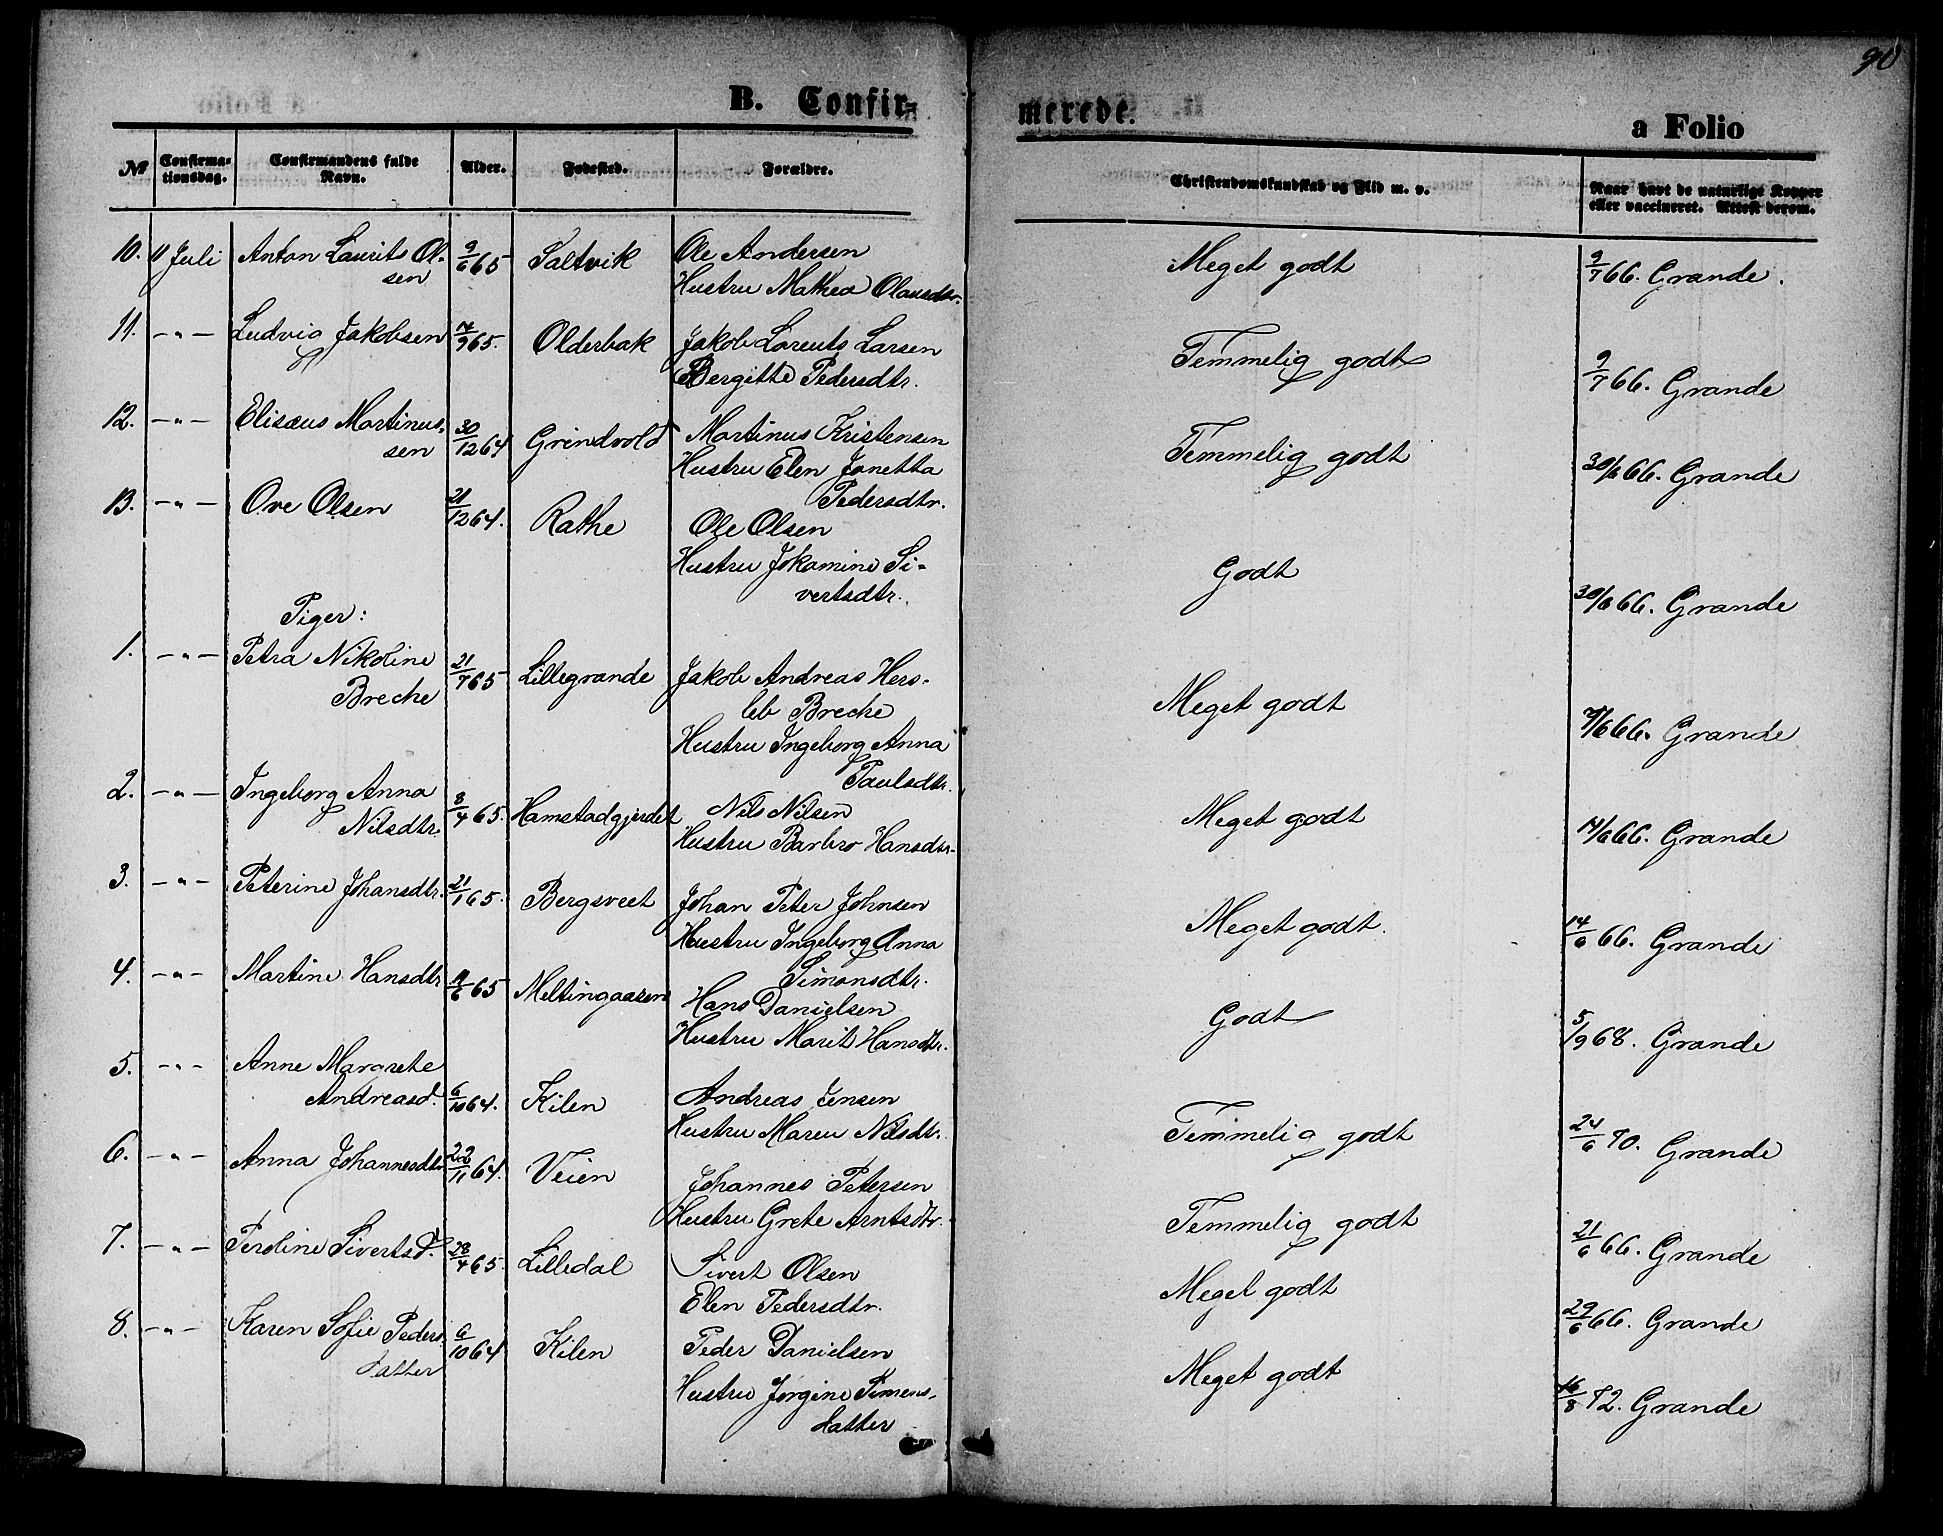 90
B. Confir-
merede.
a Folio
№ Confirma-tionsdag. Confirmandens fulde Navn. Alder. Fødested. Forældre. Christendomskundskab og Flid m. v. Naar havt de naturlige Kopper eller vaccineret. Attest derom.
10. 11 Juli Anton Laurits Ol- 9/6 65 Saltvik Ole Andersen Meget godt 9/7 66. Grande.
sen Hustru Mathea Olausdtr.
11. -„- Ludvig Jakobsen 14/9 65. Olderbak Jakob Lorents Larsen Temmelig godt 9/7 66. Grande
Bergitte Pedersdtr.
12. -„- Elisæus Martinus- 30/12 64 Grindvold Martinus Kristensen Temmelig godt 30/6 66. Grande
sen Hustru Elen Janetta
Pedersdtr.
13. -„- Ove Olsen 21/12 64. Rathe Ole Olsen Godt 30/6 66. Grande
Hustru Jokamine Si-
vertsdtr.
Piger:
1. -„- Petra Nikoline 21/7 65 Lillegrande Jakob Andreas Hers- Meget godt 7/6 66. Grande
Breche leb Breche
Hustru Ingeborg Anna
Paulsdtr.
2. -„- Ingeborg Anna 8/4 65. Hamstadgjerdet Nils Nilsen Meget godt 14/6 66. Grande
Nilsdtr. Hustru Barbro Hansdtr.
3. -„- Peterine Johansdtr. 21/1 65. Bergsveet Johan Peter Johnsen Meget godt. 14/6 66. Grande
Hustru Ingeborg Anna
Simonsdtr.
4. -„- Martine Hansdtr 11/6 65 Meltingaasen Hans Danielsen Godt 5/9 68. Grande
Hustru Marit Hansdtr.
5. -„- Anne Margrete
Andreasd. 6/10 64. Kilen Andreas Jensen Temmelig godt 24/6 70. Grande
Hustru Maren Nilsdtr.
6. -„- Anna Johannesdtr 22/11 64. Veien Johannes Petersen Temmelig godt 21/6 66. Grande
Hustru Grete Arntsdtr.
7. -„- Perdine Sivertsd. 28/4 65 Lilledal Sivert Olsen Meget godt 29/6 66. Grande
Elen Pedersdtr.
8. -„- Karen Sofie Peders 6/10 64 Kilen Peder Danielsen Meget godt 16/8 72. Grande
datter Hustru Jørgine Simens-
datter